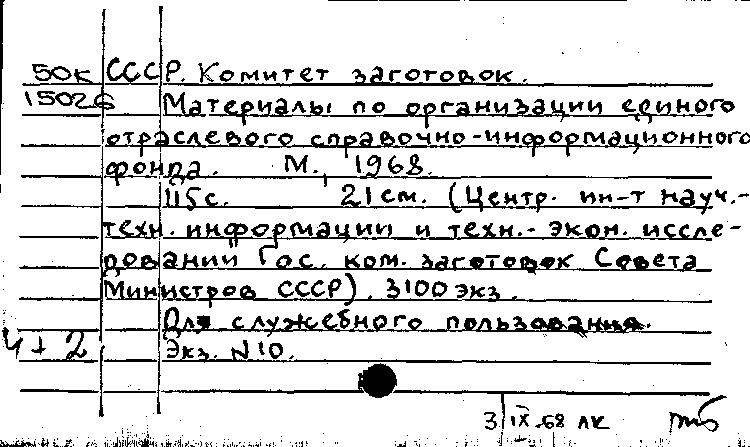 50к СССР. Комитет заготовок.
15026 Материалы по организации единого
отраслевого справочно-информационного
фонда. М., 1968.
115с. 21см. (Центр. ин-т науч.-
техн. информации и техн.- экон. иссле-
дований Гос. ком. заготовок Совета
Министров СССР). 3100 экз.
Для служебного пользования.
4+2 Экз. N10.
3 IX.68 ЛК